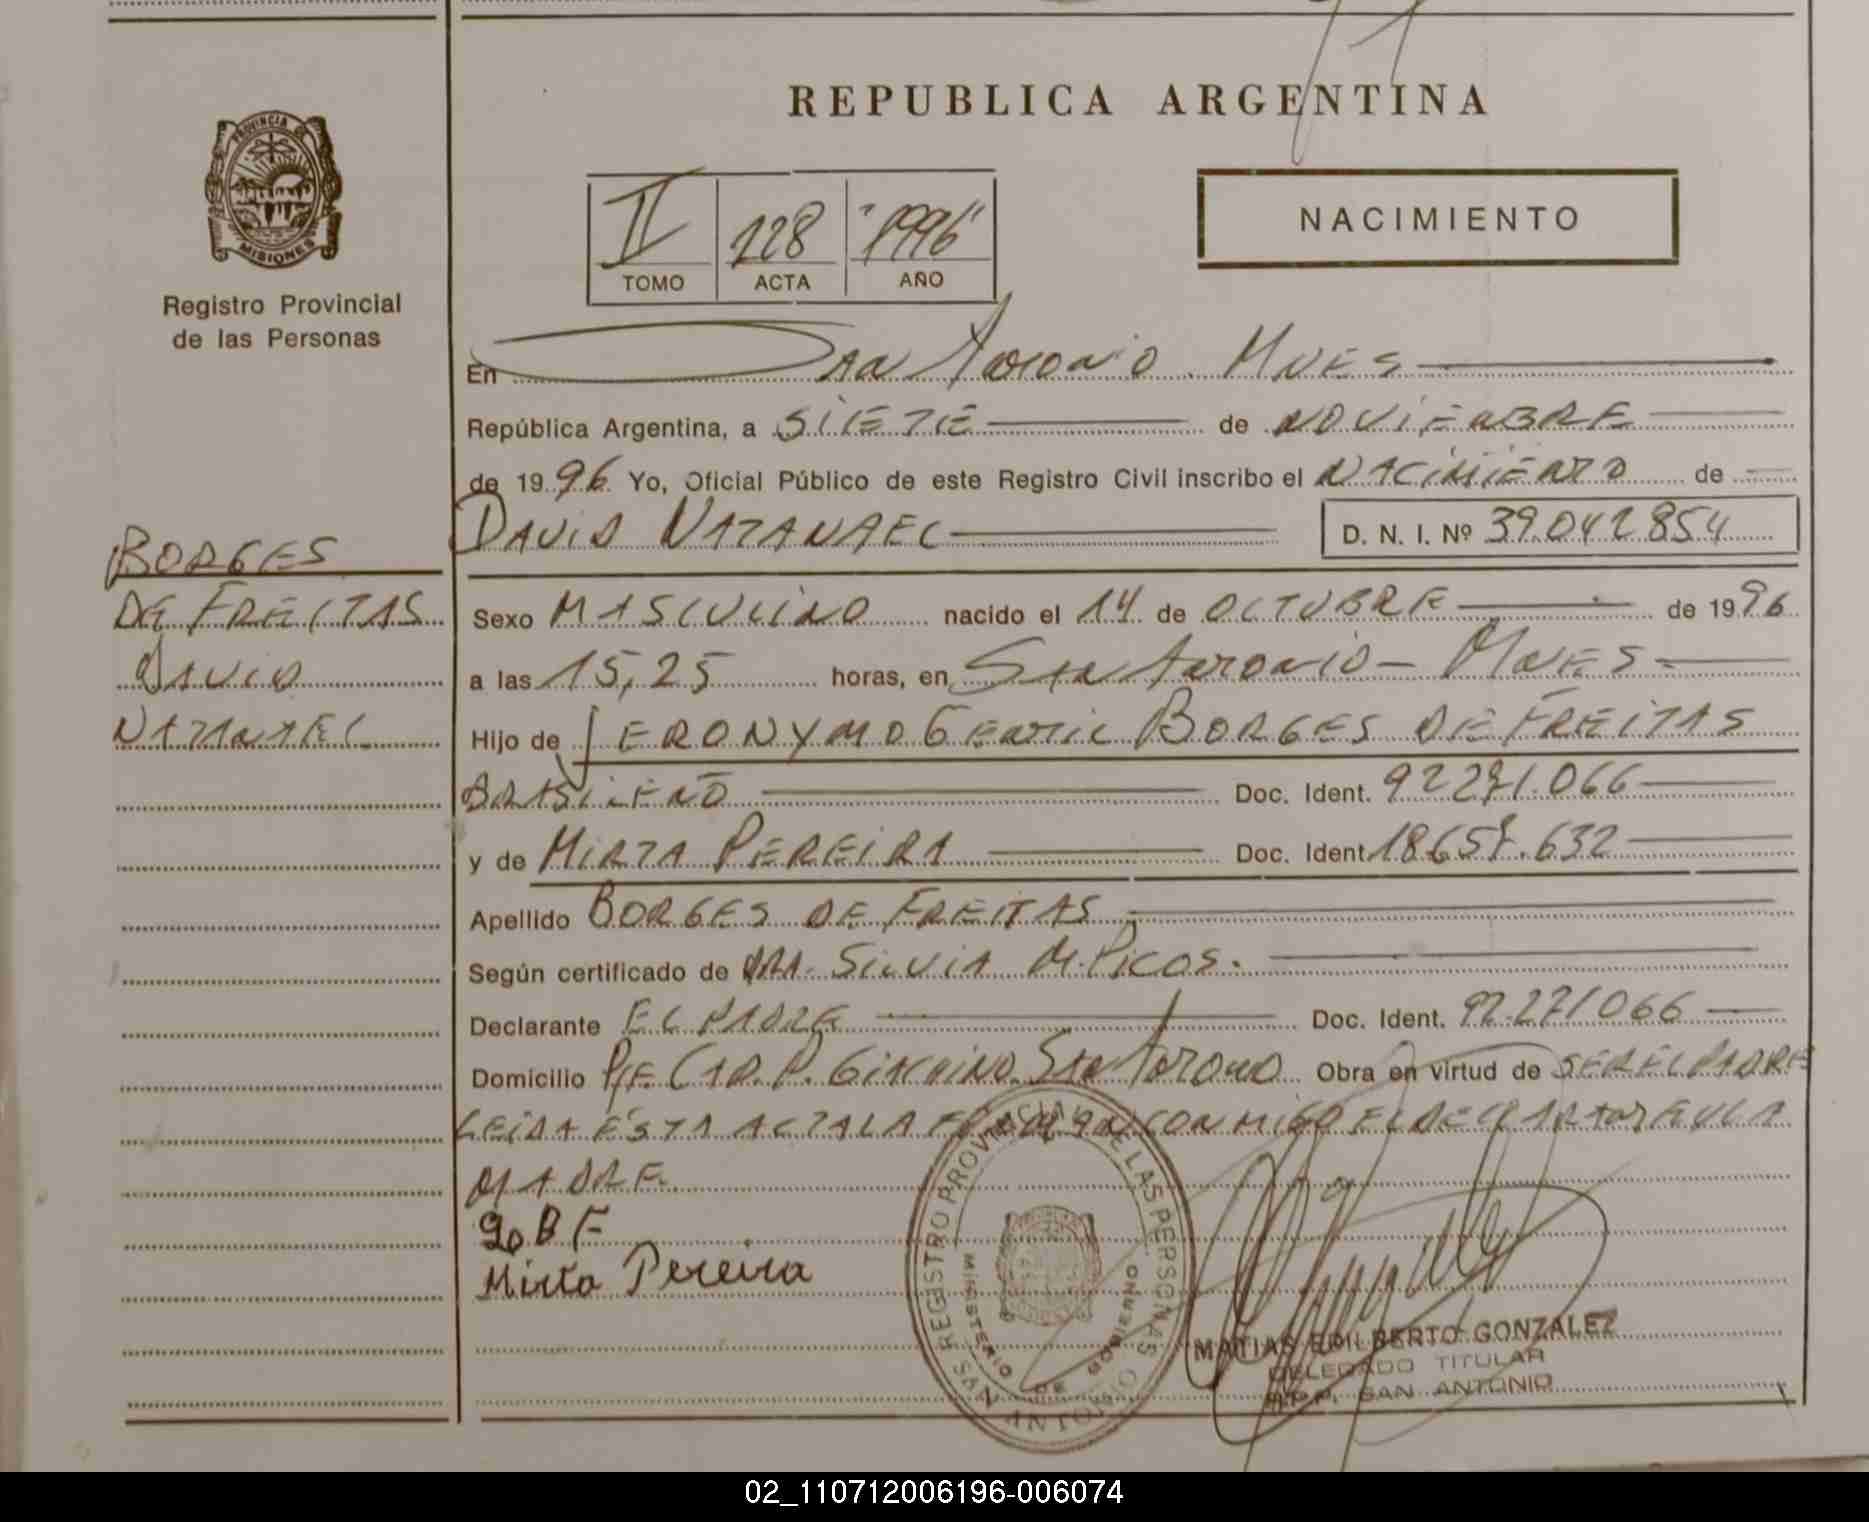 REPUBLICA ARGENTINA
PROVINCIA DE MISIONES
Registro Provincial
de las Personas
II 128 "1996"
TOMO ACTA AÑO
NACIMIENTO
En San Antonio. Mnes
República Argentina, a SIETE de NOVIEMBRE
de 1996 Yo, Oficial Público de este Registro Civil inscribo el NACIMIENTO de
DAVID NATANAEL D. N. I. Nº 39.042854
BORGES
DE FREITAS
DAVID
NATANAEL
Sexo MASCULINO nacido el 14 de OCTUBRE de 1996
a las 15,25 horas, en San Antonio - Mnes
Hijo de JERONYMO GENTIL BORGES DE FREITAS
BRASILEÑO Doc. Ident. 92271.066
y de MIRTA PEREIRA Doc. Ident 18657.632
Apellido BORGES DE FREITAS
Según certificado de DRA. SILVIA M. PICOS.
Declarante EL PADRE Doc. Ident. 92.271066
Domicilio San Antonio Obra en virtud de SER EL PADRE
LEIDA ESTA ACTA LA FIRMAN CONMIGO EL DECLARANTE Y LA
MADRE.
BF
Mirta Pereira
REGISTRO PROVINCIAL DE LAS PERSONAS
MINISTERIO DE GOBIERNO
SAN ANTONIO
MATIAS EDILBERTO GONZALEZ
DELEGADO TITULAR
R.P.P. SAN ANTONIO
02_110712006196-006074